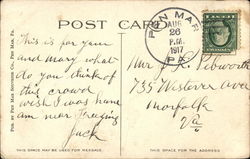 POST CARD
PEN MAR
AUG
26
P.M.
1917
PA.
This is for you
and Mary what
do you think of
this crowd
wish I was home
am near freezing
Jack
Mr J. R. Pebworth
735 Westover Ave
Norfolk
Va
THIS SPACE MAY BE USED FOR MESSAGE.
THIS SPACE FOR THE ADDRESS